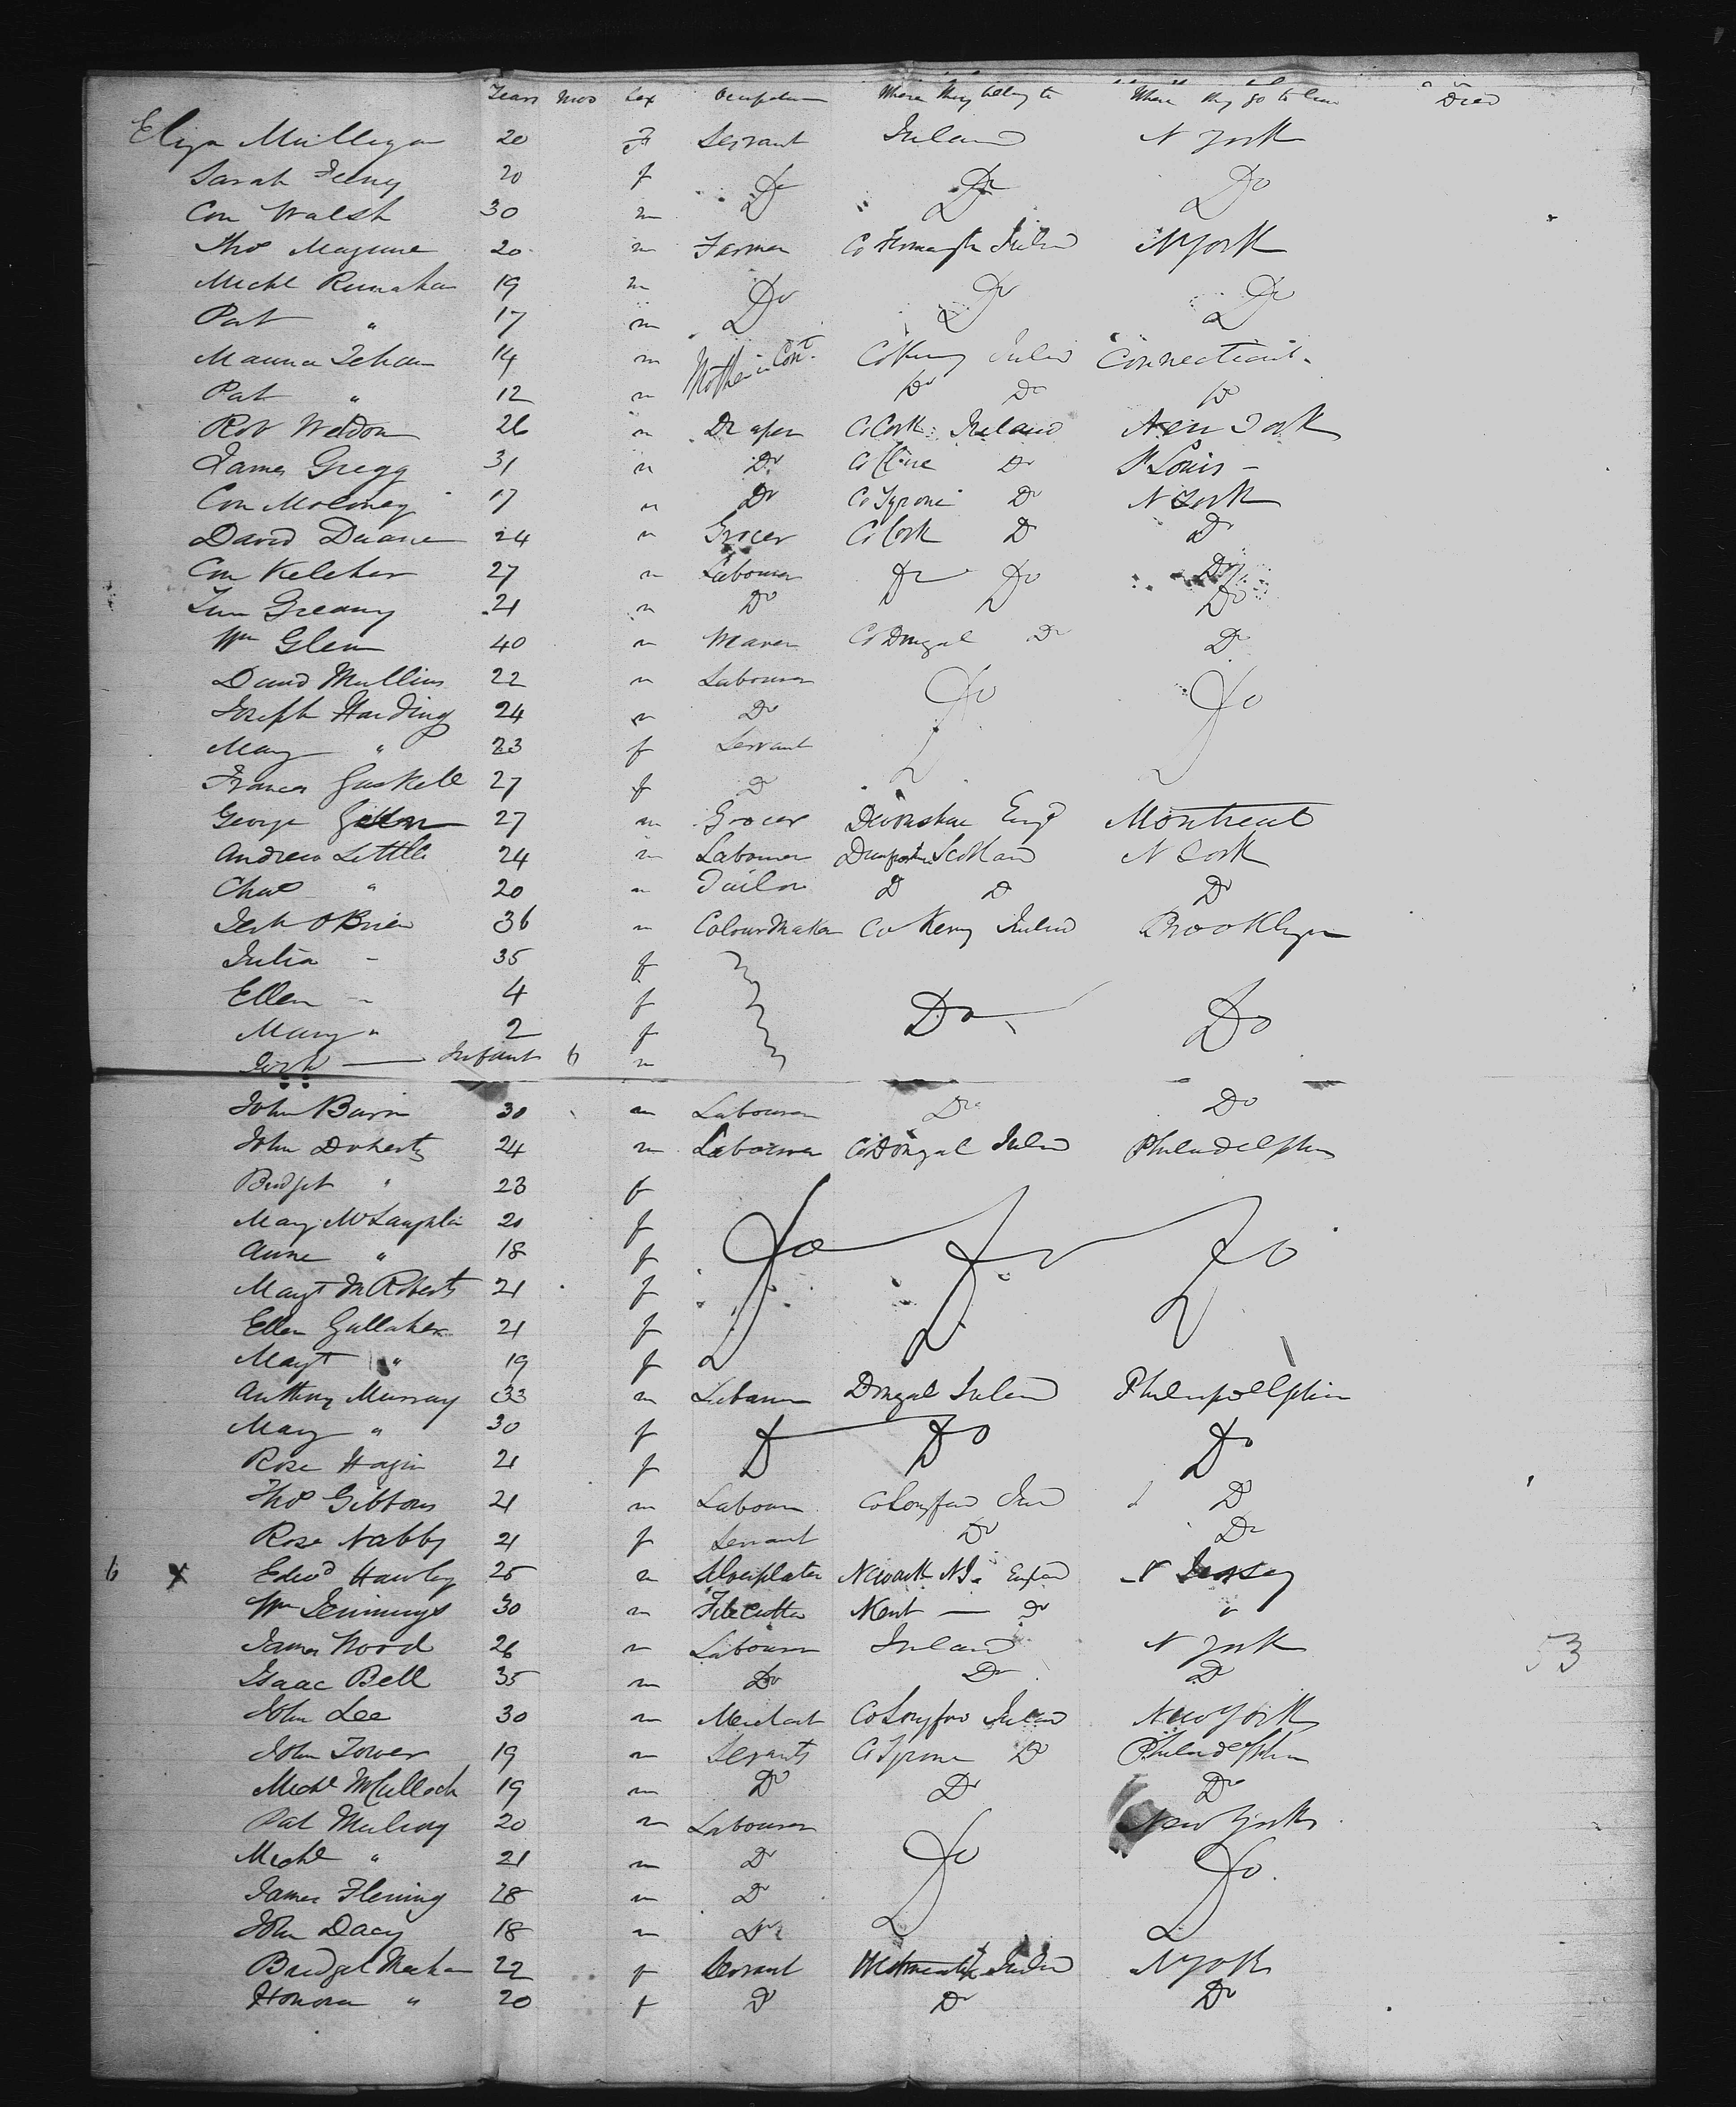 Years Mos Sex Occupation Where they belong to Where they go to Died
Eliza Mulligan 20 F Servant Ireland N York
Sarah Feeny 20 f Do Do Do
Con Walsh 30 m
Thos Maguire 20 m Farmer Co Fermagh Ireland N York
Michl 19 m Do Do Do
Pat " 17 m
Maurice 14 m Mother in Cont. Co Kerry Ireland Connecticut
Pat " 12 m Do Do Do
Rob Weldon 26 m Draper Co Cork Ireland New York
James Gregg 31 m Do Co Clare Do St Louis
Con Moloney 17 m Do Co Tyrone Do N York
David Duane 24 m Grocer Co Cork D Do
Con Keleher 27 m Labourer Do Do Do
Tim Greany 21 m Do Do
Wm Glenn 40 m Co Dongal Do Do
David Mullins 22 m Labourer Do Do
Joseph Harding 24 m Do
Mary " 23 f Servant
Frances Gaskell 27 f D
George 27 m Grocer Devonshire Engd Montreal
Andrew Little 24 m Labourer Scotland N York
Chas " 20 m Tailor D D Do
Jerh OBrien 36 m Colour Maker Co Kerry Ireland Brooklyn
Julia - 35 f
Ellen - 4 f Do Do
Mary " 2 f
Infant 6 m
John 30 m Labourer Do Do
John Doherty 24 m Labourer Co Dongal Ireland Philadelphia
Bridget " 23 f
Mary McLaughlin 20 f Do Do Do
Anne " 18 f
Margt McRoberts 21 f
Ellen Gallaher 21 f
Margt " 19 f
Anthony Murray 33 m Labourer Dongal Ireland Philadelphia
Mary " 30 f D Do Do
Rose Hagin 21 f
Thos Gibbons 21 m Labourer Co Longford Ireld D
Rose Nabby 21 f Servant Do Do
6 x Edwd Hawley 25 m Silverplater Newark NJ. England N Jersey
Wm Jennings 30 m Filecutter Kent — Do "
James Wood 26 m Labourer Ireland N York
53
Isaac Bell 35 m Do Do D
John Lee 30 m Merchant Co Longford Ireland New York
John Tower 19 m Servants Co Tyrone Do Philadelphia
Michl McCulloch 19 m Do Do Do
Pat 20 m Labourer Do New York
Michl " 21 m D Do
James Fleming 28 m D
John Dacy 18 m Do
Bridget Meehan 22 f Servant Westmeath Ireland N York
Honora " 20 f D Do Do